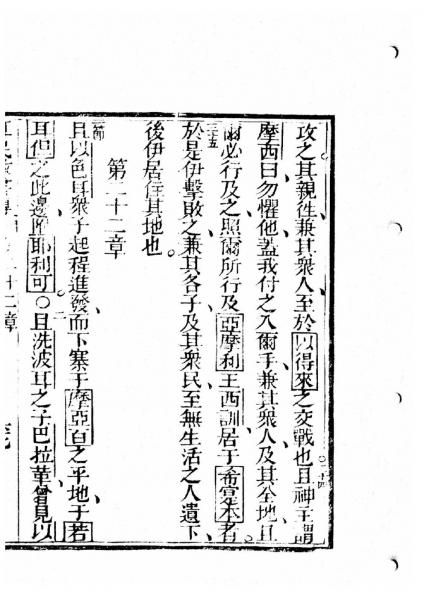 攻之其親徃兼其衆人至於以得來之交戰也且神主謂
三十四
摩西曰勿懼他蓋我付之入爾手兼其衆人及其全地且
爾必行及之照爾所行及亞摩利王西訓居于希宣本者
三十五
於是伊擊敗之兼其各子及其衆民至無生活之人遺下
後伊居住其地也
第二十二章
一節
且以色耳衆子起程進發而下寨于摩亞百之平地于若
耳但之此邊附耶利可〇且洗波耳之子巴拉革曾見以
二
二十二章